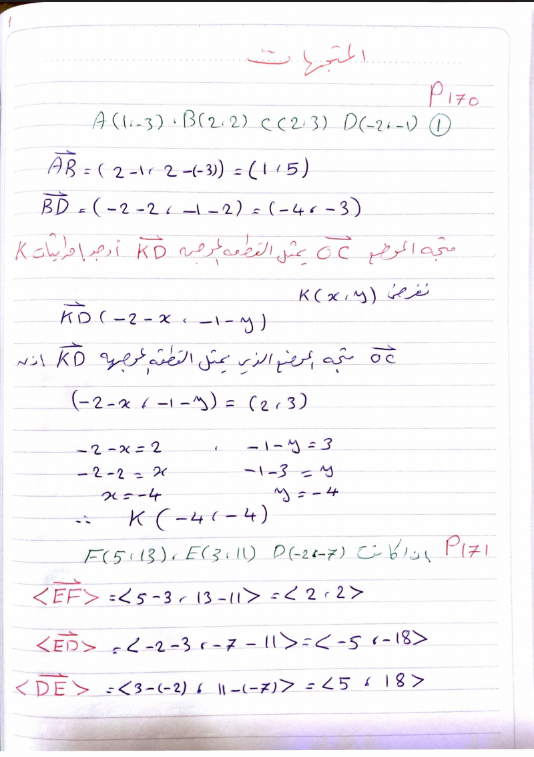 1
المتجهات
P170
A(1،-3)، B(2،2) C(2،3) D(-2،-1) ①
AB = (2-1، 2-(-3)) = (1،5)
BD = (-2-2، -1-2) = (-4، -3)
متجه الموضع OC يمثل القطعة الموجهة KD أوجد إحداثيات K
نفرض K(x،y)
KD(-2-x، -1-y)
OC متجه الموضع الذي يمثل القطعة الموجهة KD اذن
(-2-x، -1-y) = (2،3)
-2-x=2 ، -1-y=3
-2-2=x -1-3=y
x=-4 y=-4
∴ K(-4،-4)
P171 إذا كانت F(5،13)، E(3،11) D(-2،-7)
<EF> = <5-3، 13-11> = <2،2>
<ED> = <-2-3، -7-11> = <-5،-18>
<DE> = <3-(-2)، 11-(-7)> = <5، 18>